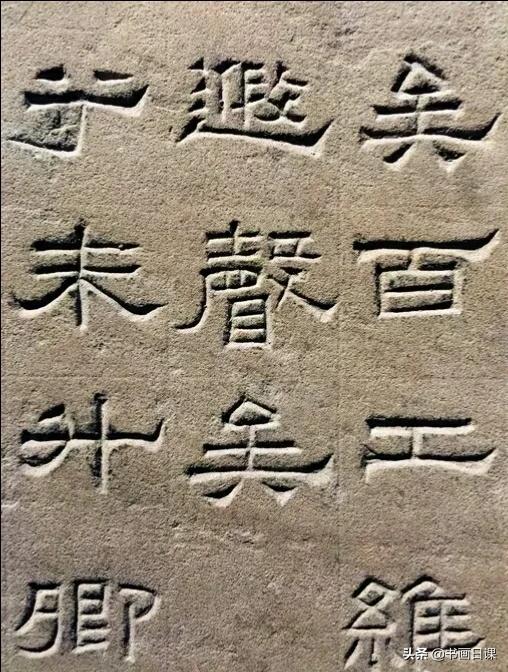 矣百工維
遐聲矣
未升卿
頭条 @书画日课